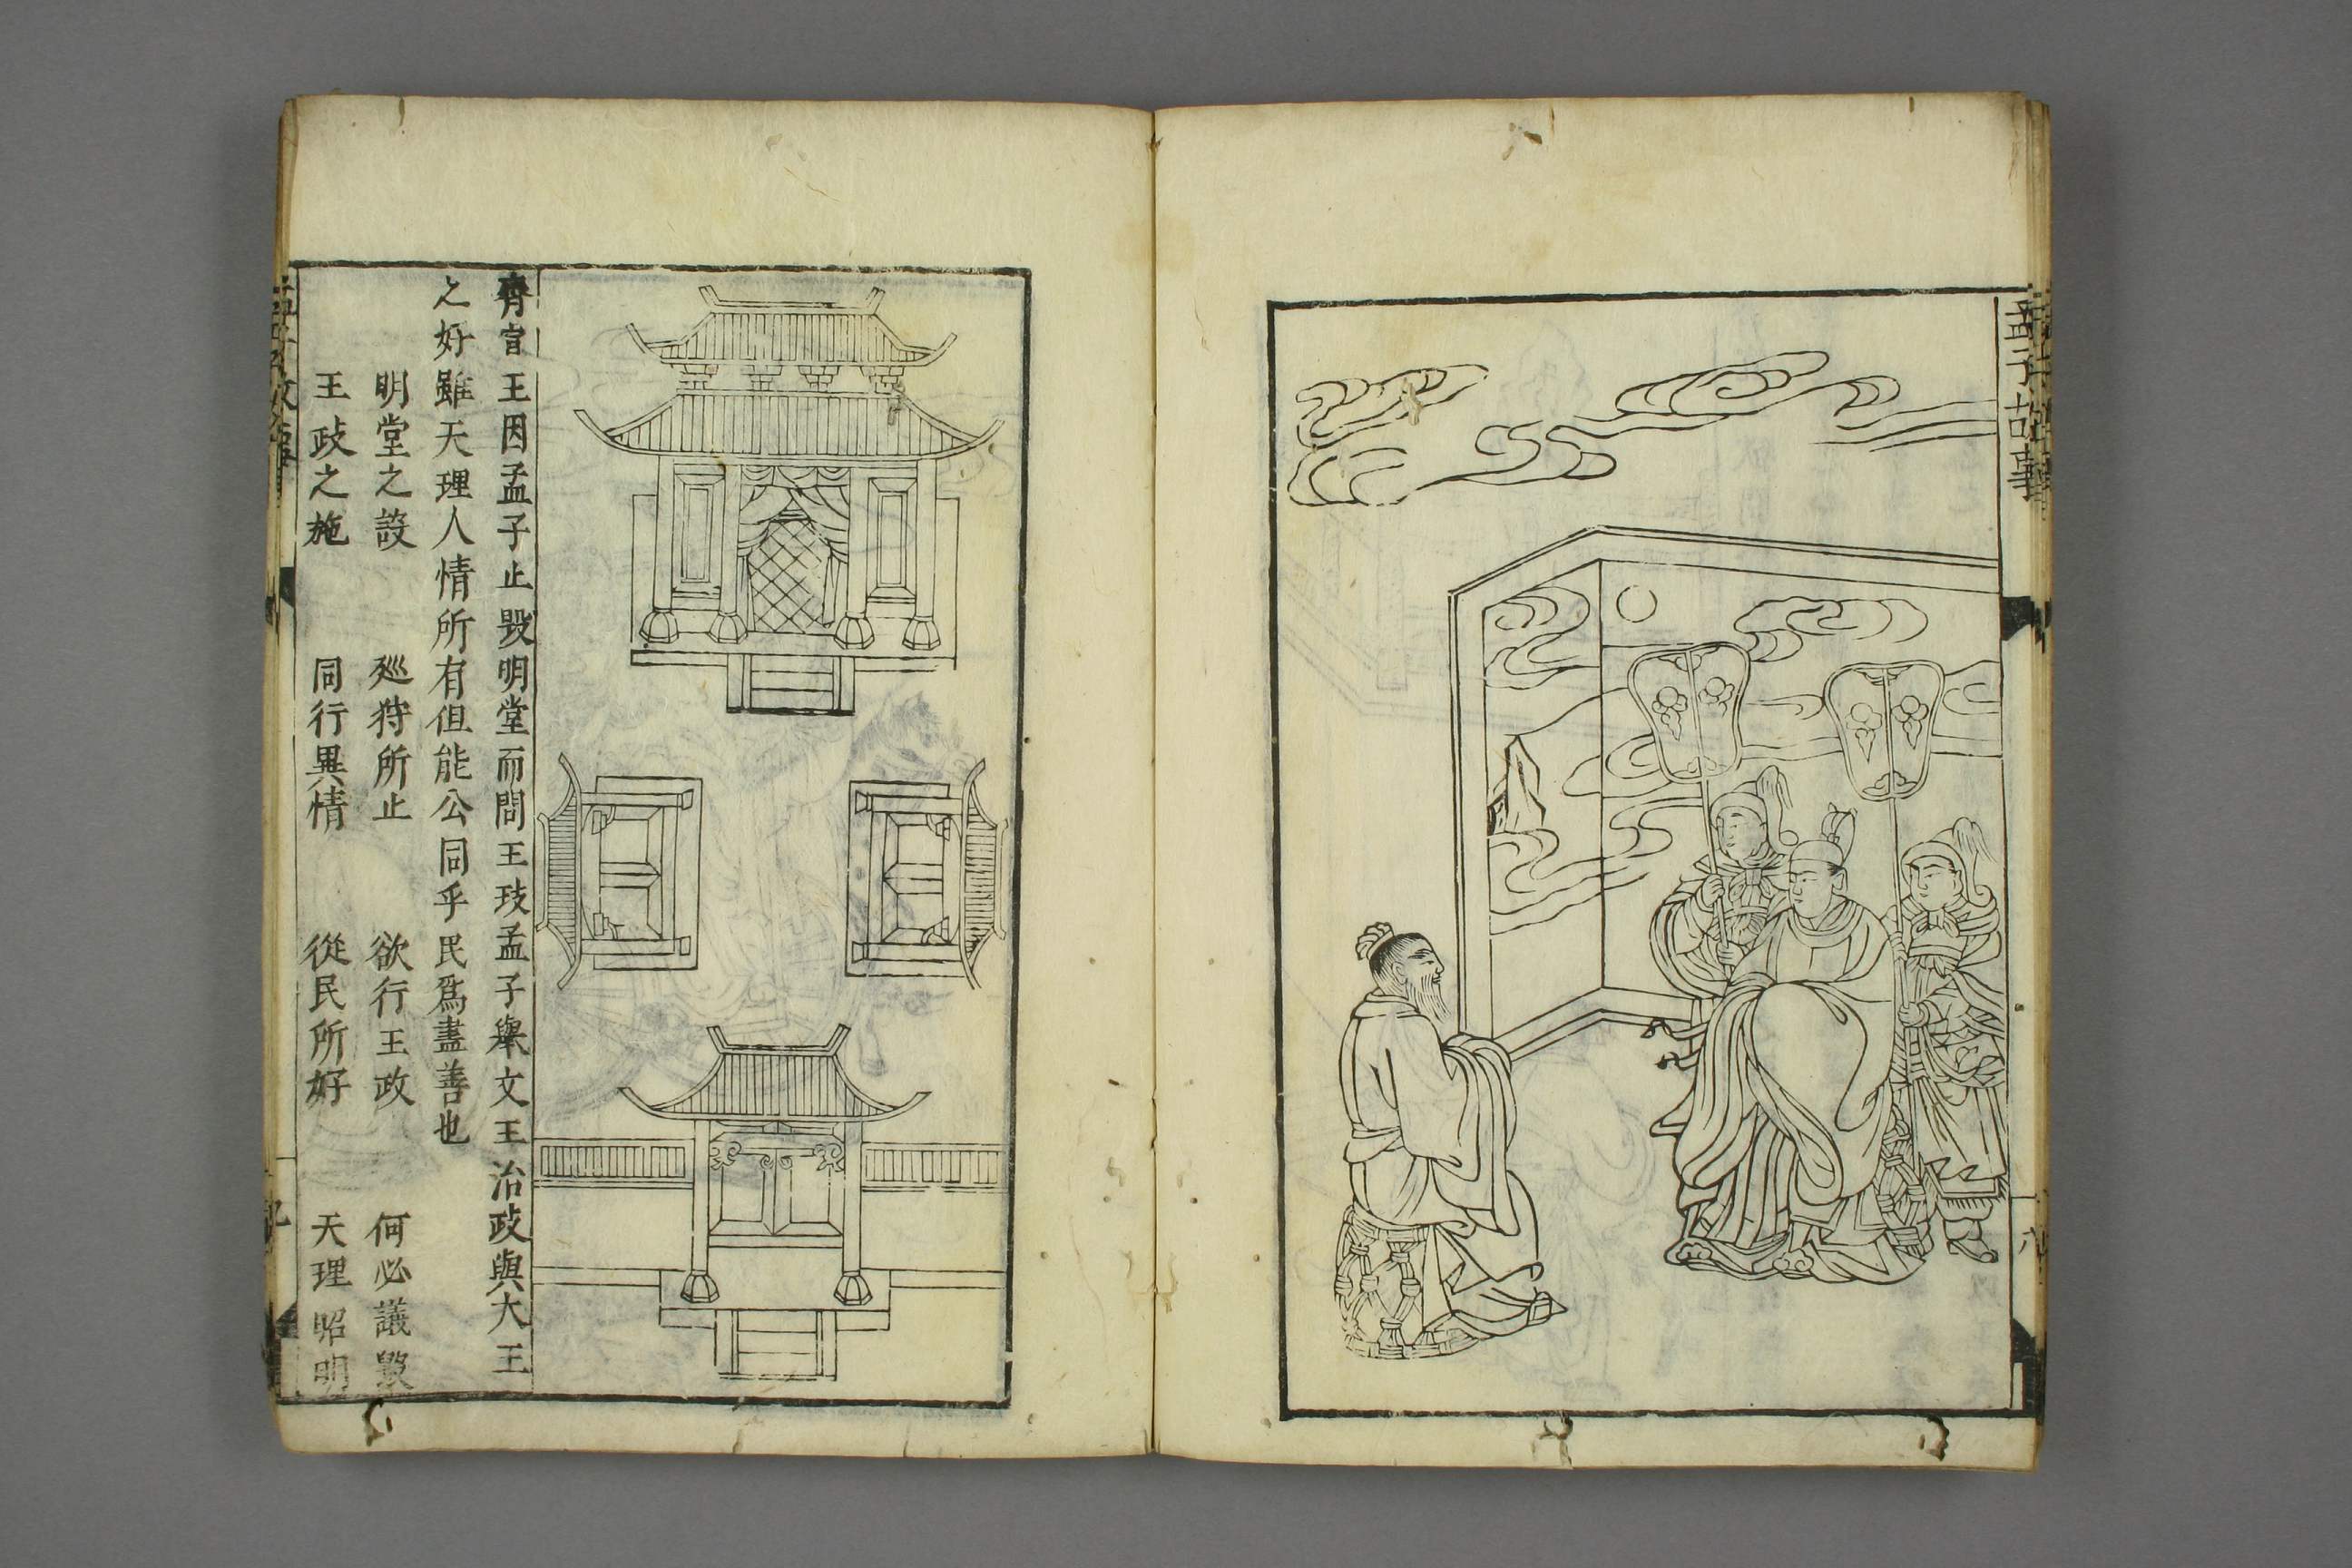 孟子故事
八
齊宣王因孟子止毁明堂而問王政孟子舉文王治政與大王
之好雖天理人情所有但能公同乎民爲盡善也
明堂之設　廵狩所止　欲行王政　何必議毁
王政之施　同行異情　從民所好　天理昭明